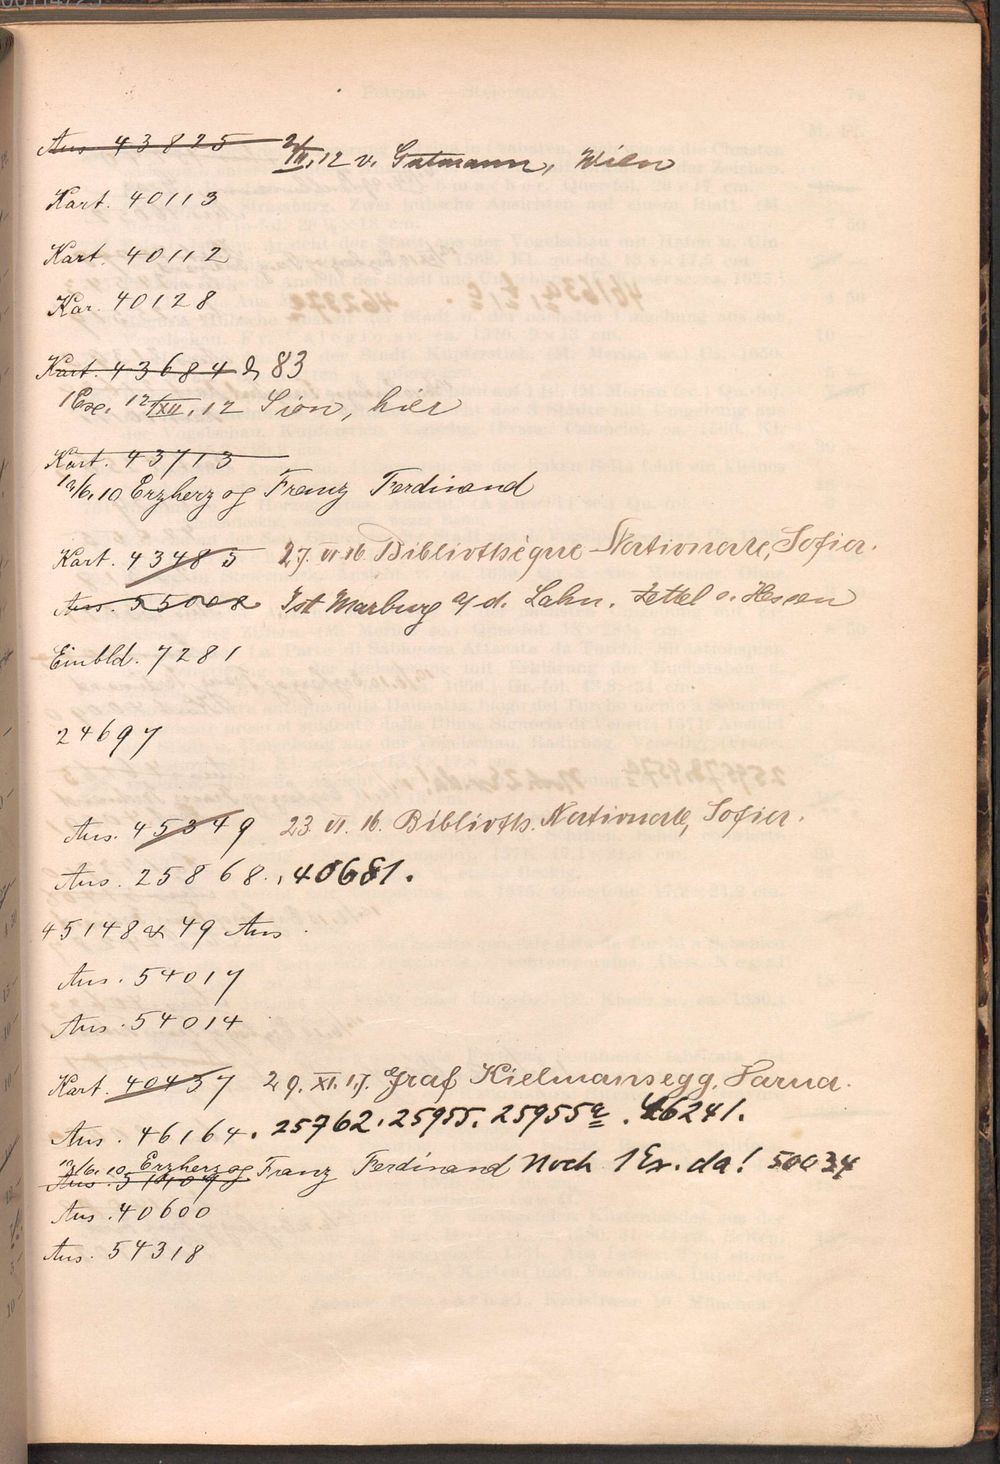 Ans 43825 2/IV. 12 v. Gutmann, Wien
Kart. 40113
Kart. 40112
Kar. 40128
Kart. 43684 & 83
1 Ex. 12/XII. 12 Sion, hier
Kart. 43713
13/6. 10 Erzherzog Franz Ferdinand
Kart. 43485 27. VI 16 Bibliothèque Nationale, Sofia.
Ans. 55008 Ist Marburg a/d. Lahn. Zettel v. Hessen
Einbld. 7281
24697
Ans. 45349 23. VI. 16. Biblioth. Nationale, Sofia.
Ans. 25868., 40681.
45148 & 49 Ans.
Ans. 54017
Ans. 54014
Kart. 40437 29. XI. 17. Graf Kielmansegg, Sarna.
Ans. 46164. 25762. 25955. 25955a. 46241.
13/6. 10 Erzherzog Franz Ferdinand Noch 1 Ex. da! 50034
Ans. 51409
Ans. 40600
Ans. 54318